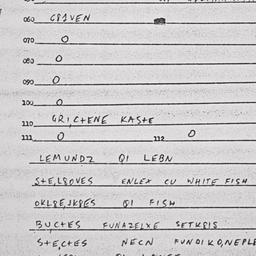 060 C81VEN
070 O
080 O
090 O
100 O
110 GRICTENE KASTE
111 O 112 O
LEMUNDZ QI LEBN
STE,L8OVES ENLEX CU WHITE FISH
OKL8E,JK8ES QI FISH
BUCTES FUNAZELXE SETK8IS
STE,CTES NECN FUNDIKO,NEPLE